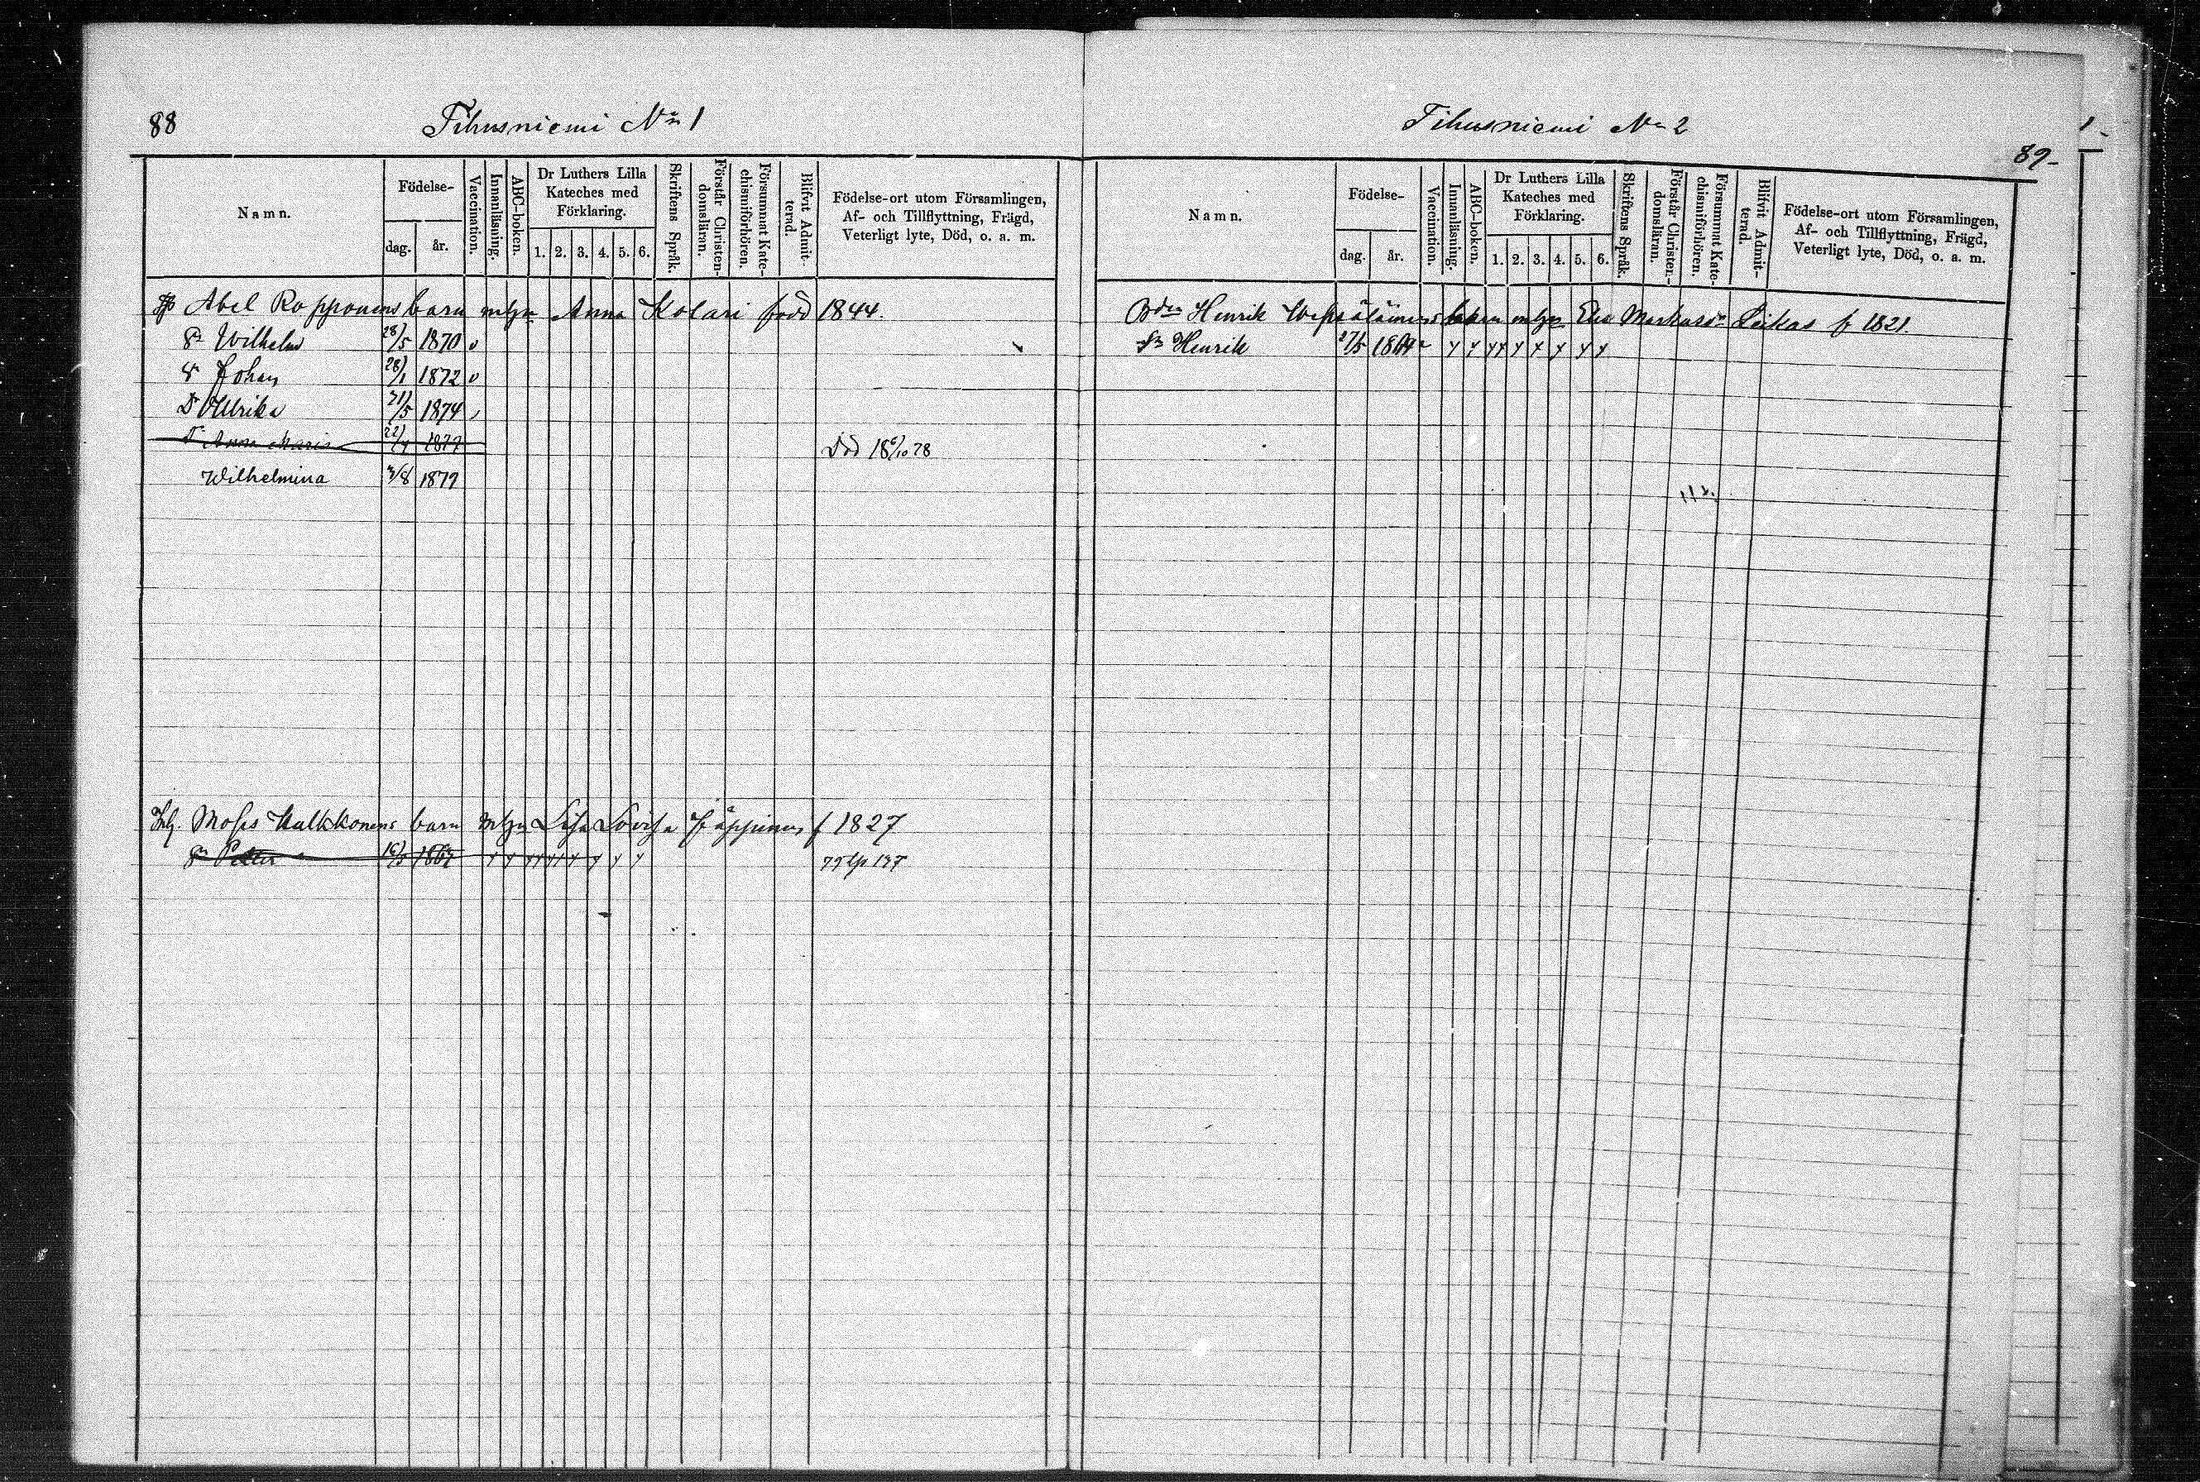 88
Tihusniemi No 1
Namn.
Födelse-
dag.
år.
Vaccination.
Innanläsning.
ABC-boken.
Dr Luthers Lilla
Kateches med
Förklaring.
1. 2. 3. 4. 5. 6.
Skriftens Språk.
Förstår Christen-
domsläran.
Försummat Kate-
chismiförhören.
Blifvit Admit-
terad.
Födelse-ort utom Församlingen,
Af- och Tillflyttning, Frägd,
Veterligt lyte, Död, o. a. m.
Abel Ropponens barn m hu Anna Kolari född 1844.
Sn Wilhelm 28/5 1870 v
S Johan 28/1 1872 v
Dr Ulrika 21/5 1874
Anna Maria 22/4 1877 Död 18 6/10 78
Wilhelmina 3/8 1879
Inh. Moses Kulkkonens barn Lisa Lovisa f 1827
Sn Petter 1867
Tihusniemi No 2
89
Namn.
Födelse-
dag.
år.
Vaccination.
Innanläsning.
ABC-boken.
Dr Luthers Lilla
Kateches med
Förklaring.
1. 2. 3. 4. 5. 6.
Skriftens Språk.
Förstår Christen-
domsläran.
Försummat Kate-
chismiförhören.
Blifvit Admit-
terad.
Födelse-ort utom Församlingen,
Af- och Tillflyttning, Frägd,
Veterligt lyte, Död, o. a. m.
Bdn Henrik barn Eva Markusdr f 1821.
Sn Henrik 27/5